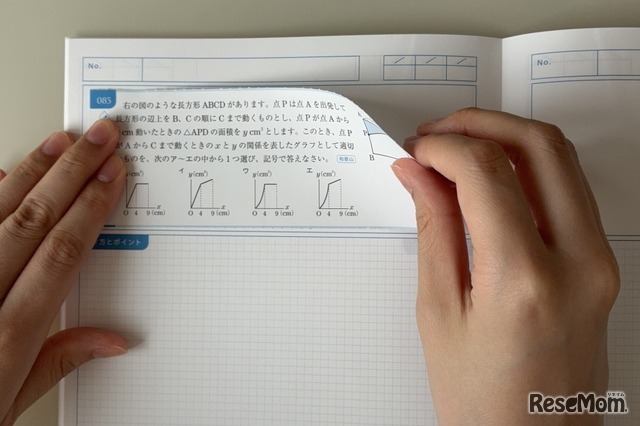 No.
No.
085
右の図のような長方形ABCDがあります。点Pは点Aを出発して
長方形の辺上をB、Cの順にCまで動くものとし、点Pが点Aから
cm動いたときの△APDの面積をy cm²とします。このとき、点P
がAからCまで動くときのxとyの関係を表したグラフとして適切
ものを、次のア〜エの中から1つ選び、記号で答えなさい。 和歌山
A
P
B
y(cm²) イ y(cm²) ウ y(cm²) エ y(cm²)
O 4 9(cm) x O 4 9(cm) x O 4 9(cm) x O 4 9(cm) x
方とポイント
ReseMom